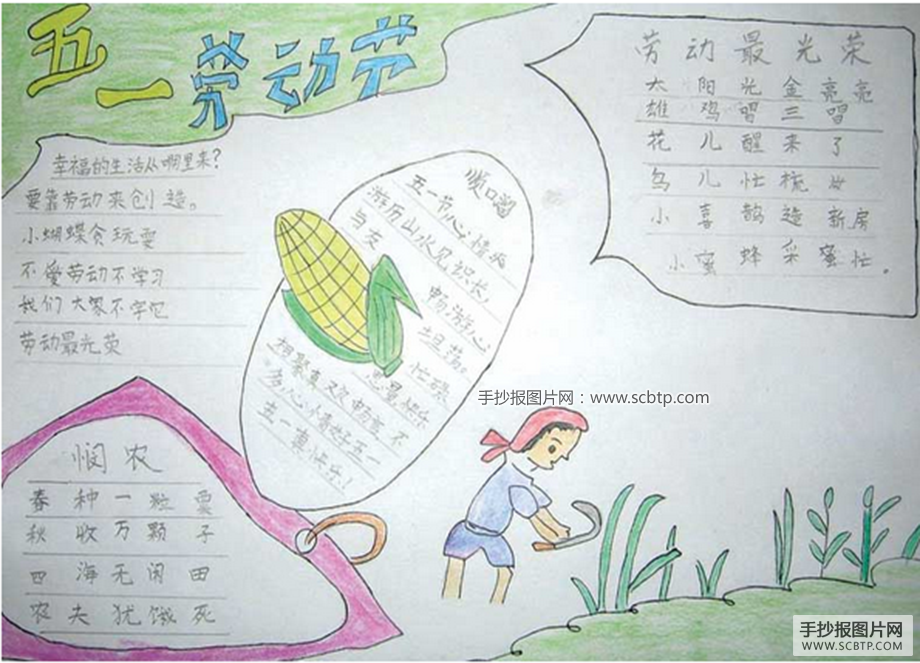 五一劳动节
幸福的生活从哪里来?
要靠劳动来创造。
小蝴蝶贪玩耍
不爱劳动不学习
我们大家不学它
劳动最光荣
顺口溜
五一节心情
游历山水见识长,
与友 畅游心
坦荡。
忙碌
相聚真欢畅言不
多心情好五一
五一真快乐!
劳动最光荣
太阳光金亮亮
雄鸡唱三唱
花儿醒来了
鸟儿忙梳妆
小喜鹊造新房
小蜜蜂采蜜忙。
悯农
春种一粒粟
秋收万颗子
四海无闲田
农夫犹饿死
手抄报图片网：www.scbtp.com
手抄报图片网
WWW.SCBTP.COM